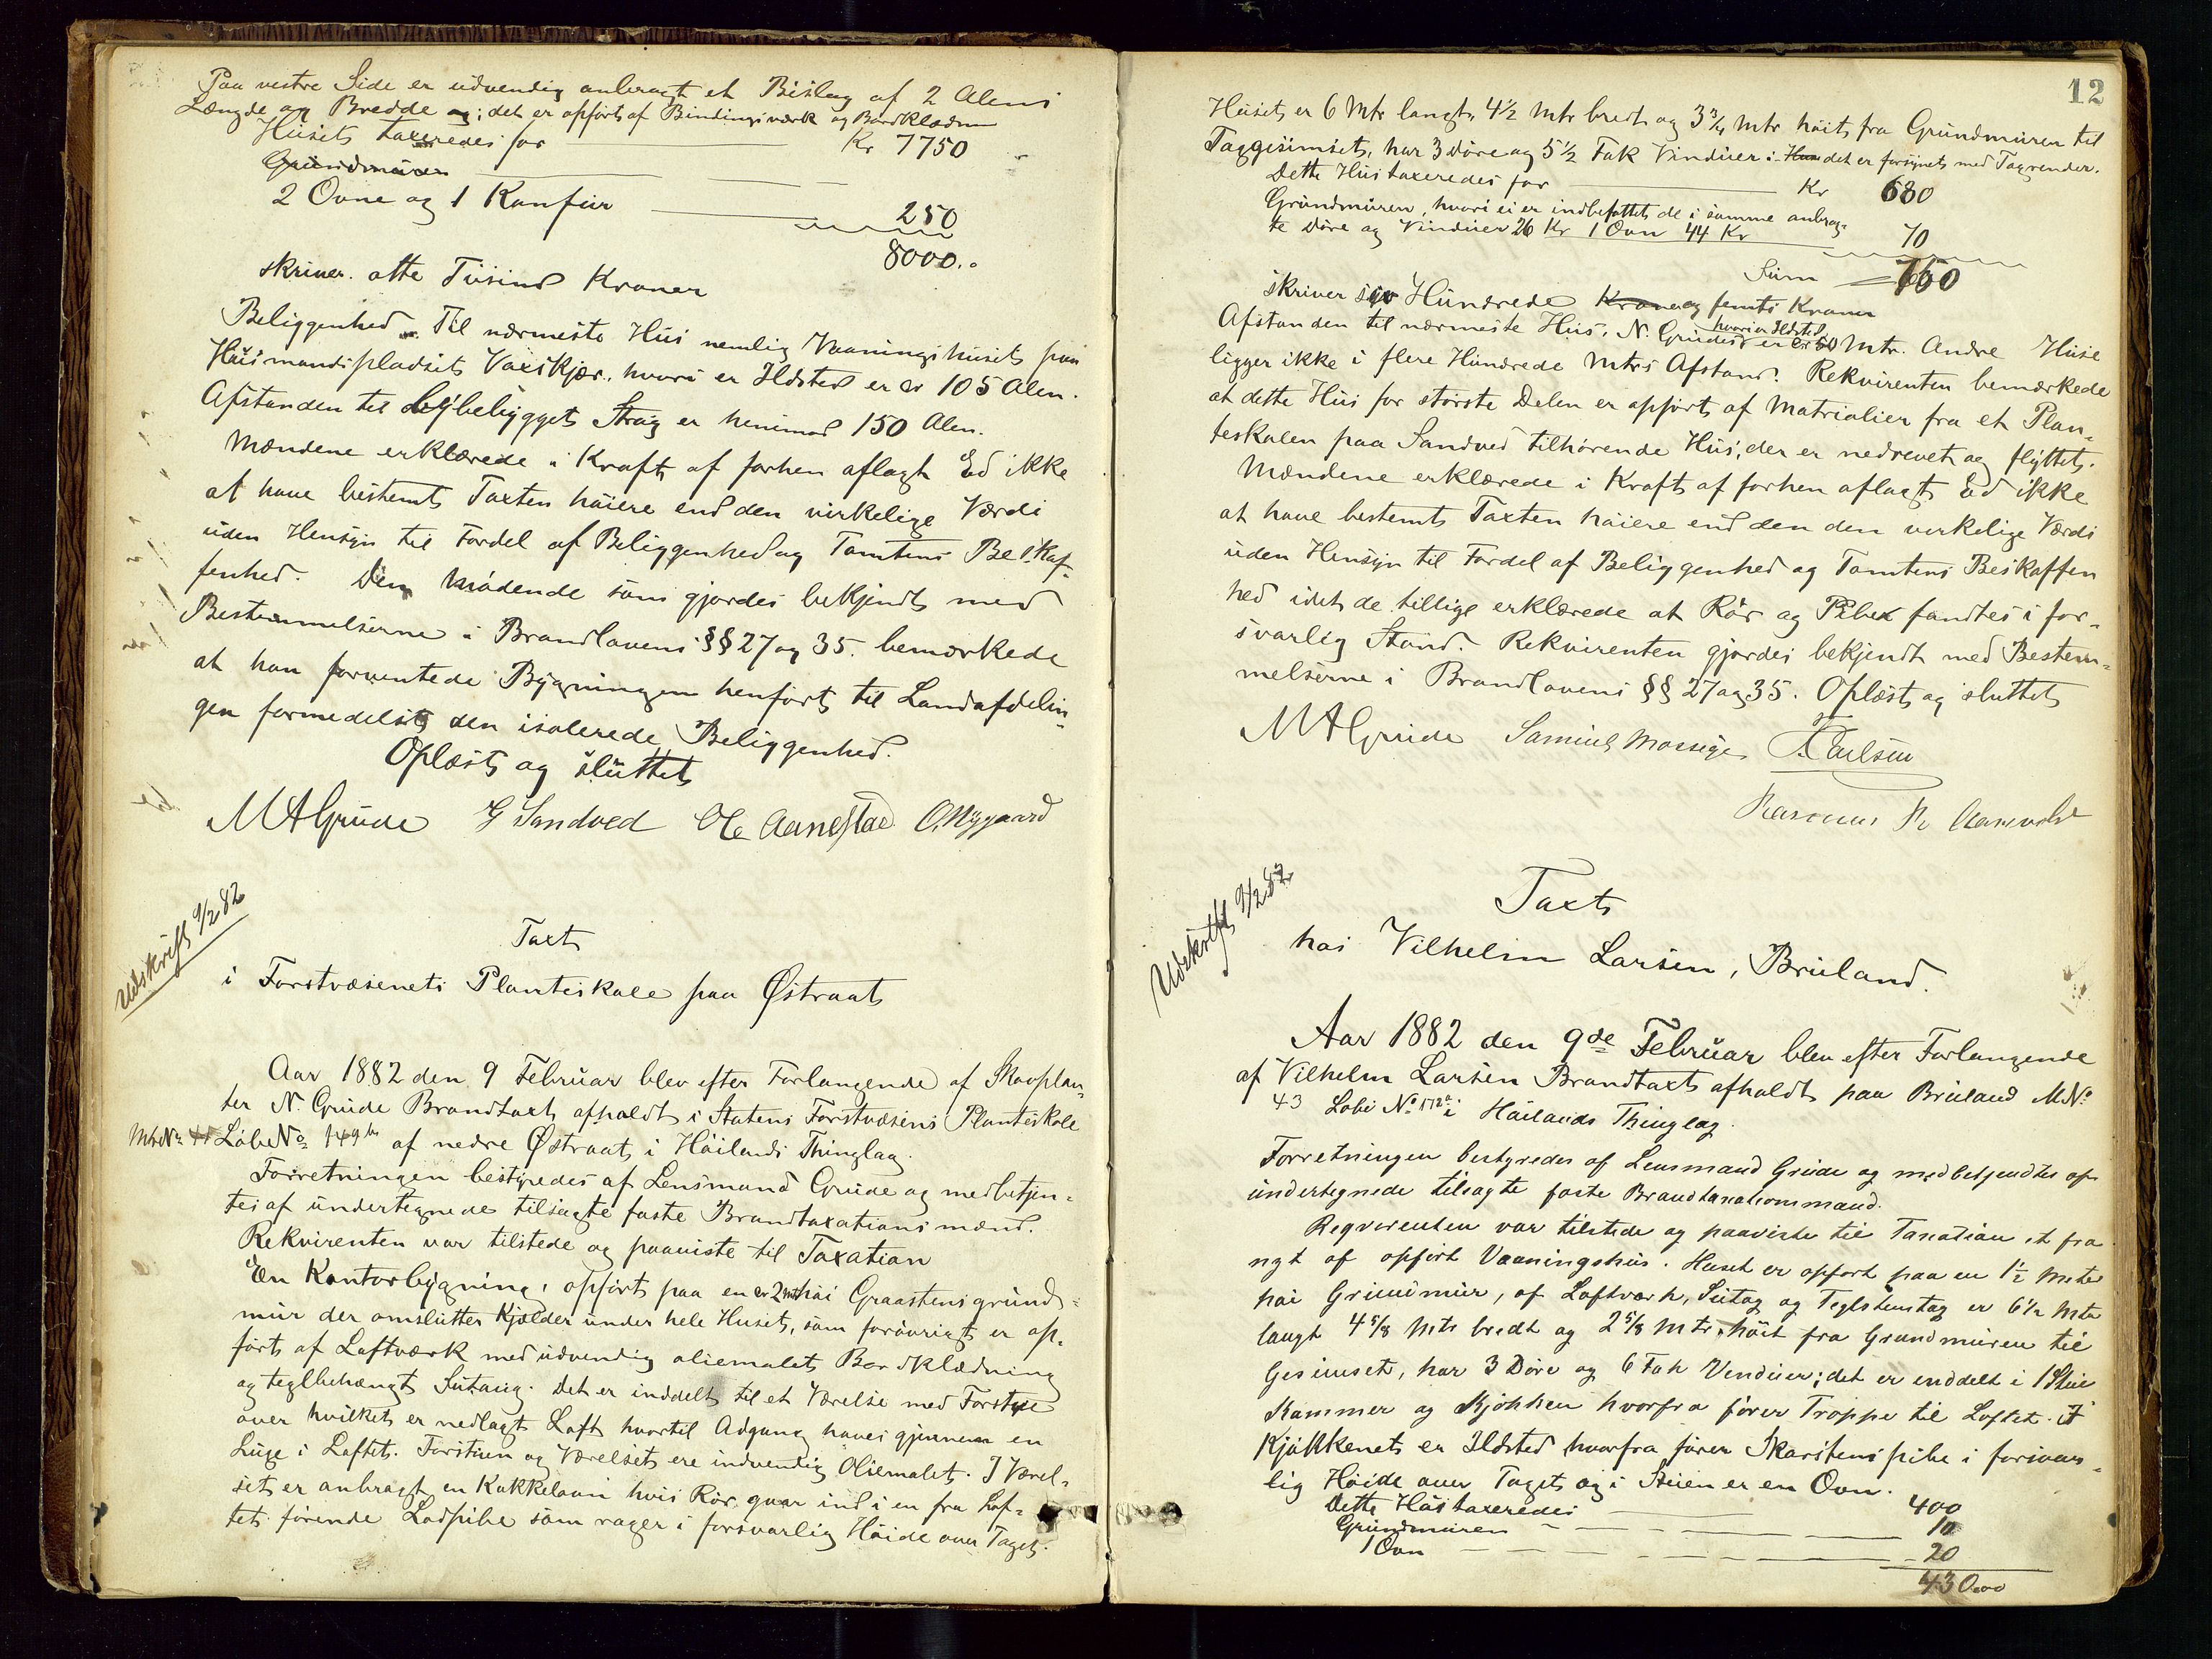 Paa vestre Side er udvendig anbragt et Bislag af 2 Alens
Længde og Bredde og; det er opført af Bindingsværk og Bordklædnin
Husets taxeredes for Kr 7750
Grundmuren
2 Ovne og 1 Komfur 250
8000..
skriver. otte Tusind Kroner
Beliggenhed. Til nærmeste Hus nemlig Vaaningshuset paa
Husmandspladsets Vaxskjær, hvori er Ildsted er cr 105 Alen.
Afstanden til Bybebygget Strøg er henimod 150 Alen.
Mændene erklærede i Kraft af forhen aflagt Ed ikke
at have bestemt Taxten høiere end den virkelige Værdi
uden Hensyn til Fordel af Beliggenhed og Tomtens Beskaf-
fenhed. Den mødende som gjordes bekjendt med
Bestemmelserne i Brandlovens §§ 27 og 35. bemærkede
at han forventede Bygningen henført til Landafdelin-
gen formedelst den isolerede Beliggenhed.
Oplæst og sluttet
M A Grude G Sandved Ole Aanestad O. Nygaard
Udskrift 9/2 82
Taxt
i Forstvæsenets Planteskole paa Østraat
Aar 1882 den 9 Februar blev efter Forlangende af Skovplan-
ter N. Grude Brandtaxt afholdt i Statens Forstvæsens Planteskole
MtrNr 41 LøbeNo 149 af nedre Østraat i Høilands Thinglag.
Forretningen bestyredes af Lensmand Grude og medbetjen-
tes af undertegnede tilsagte faste Brandtaxationsmænd.
Rekvirenten var tilstede og paaviste til Taxation
En Kontorbygning, opført paa en cr 2 mtr høi Graastensgrund-
mur der omslutter Kjælder under hele Huset, som forøvrigt er op-
ført af Laftværk med udvendig oliemalet Bordklædning
og teglbehængt Sutaug. Det er inddelt til et Værelse med Forstue
over hvilket er nedlagt Loft hvortil Adgang haves gjennem en
Luge i Loftet. Forstuen og Værelset ere indvendig Oliemalet. I Værel-
set er anbragt en Kakkelovn hvis Rør gaar ind i en fra Lof-
tet førende Lodpibe som rager i forsvarlig Høide over Taget.
12
Huset er 6 Mtr langt, 4½ Mtr bredt og 3¾ Mtr høit fra Grundmuren til
Taggesimset, har 3 Døre og 5½ Fak Vinduer: Hus det er forsynet med Tagrender.
Dette Hus taxeredes for Kr 680
Grundmuren, hvori ei er indbefattet de i samme anbrag-
te Døre og Vinduer 26 Kr 1 Ovn 44 Kr 70
Sum 750
skriver syv Hundrede Kroner og femti Kroner
Afstanden til nærmeste Hus, N. Grudes hvori er Ildsted er cr 50 Mtr. Andre Huse
ligger ikke i flere Hundrede Mtrs Afstand. Rekvirenten bemærkede
at dette Hus for største Delen er opført af Matrialier fra et Plan-
teskolen paa Sandved tilhørende Hus, der er nedrevet og flyttet.
Mændene erklærede i Kraft af forhen aflagt Ed ikke
at have bestemt Taxten høiere end den den virkelige Værdi
uden Hensyn til Fordel af Beliggenhed og Tomtens Beskaffen
hed idet de tillige erklærede at Rør og Piber fandtes i for-
svarlig Stand. Rekvirenten gjordes bekjendt med Bestem-
melserne i Brandlovens §§ 27 og 35. Oplæst og sluttet
M A Grude Samuel Mossige T. Carlsen
Rasmus R
Udskrift 9/2 82
Taxt
hos Vilhelm Larsen, Brueland.
Aar 1882 den 9de Februar blev efter Forlangende
af Vilhelm Larsen Brandtaxt afholdt paa Brueland M.No
43 Løbe No 172a i Høilands Thinglag.
Forretningen bestyredes af Lensmand Grude og medbetjendtes af
undertegnede tilsagte faste Brandtaxationsmænd.
Reqvirenten var tilstede og paaviste til Taxation et fra
nyt af opført Vaaningshus. Huset er opført paa en 1½ Meter
høi Grundmur, af Laftværk, Sutag og Teglstenstag er 6½ Mtr
langt 4 5/8 Mtr bredt og 2 5/8 Mtr. høit fra Grundmuren til
Gesimset, har 3 Døre og 6 Fak Vinduer; det er inddelt i 1 Stue
Kammer og Kjøkken hvorfra fører Trappe til Loftet. I
Kjøkkenet er Ildsted hvorfra fører Skorstenspibe i forsvar-
lig Høide over Taget og i Stuen er en Ovn.
Dette Hus taxeredes 400
Grundmuren 10
1 Ovn 20
430.00